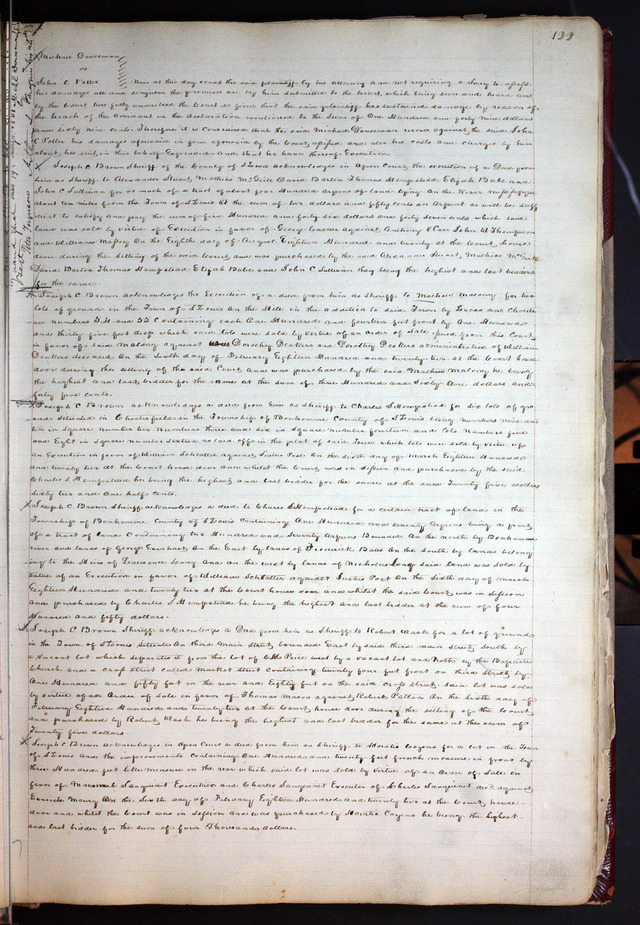 122
Michael Dousman
vs
John C Potter Now at this day comes the said plaintiff by his attorney and not requiring a Jury to assess
his damages all and singular the premises are by him submitted to the Court, which being seen and heard and
by the Court here fully understood the Court do find that the said plaintiff has sustained damage by reason of
the breach of the Covenant in the declaration mentioned to the Sum of One Hundred and forty nine dollars
and sixty nine cents. Therefore it is Considered that the said Michael Dousman recover against the said John
C Potter his damages aforesaid in form aforesaid by the Court assessed and also his costs and charges by him
about his suit in this behalf expended and that he have thereof Execution
Joseph C Brown Sheriff of the County of St Louis acknowledges in Open Court the execution of a Deed from
him as Sheriff to Alexander Stuart, Mathias McGirk David Barton Thomas Hempstead Elijah Bates and
John C Sullivan for as much of a tract of about four Hundred arpens of land lying On the River
about ten miles from the Town of St Louis At the sum of two dollars and fifty cents an Arpent as will be suffi
cient to satisfy and pay the sum of four Hundred and forty six dollars and forty seven cents which said
land was sold by virtue of Execution in favor of George against Anthony V Carr John W Thompson
and William On the Eighth day of August Eighteen Hundred and twenty at the Court house
door during the sitting of the said Court and was purchased by the said Alexander Stuart, Mathias McGirk
David Barton Thomas Hempstead Elijah Bates and John C Sullivan they being the highest and last bidders
for the same
Joseph C Brown acknowledges the Execution of a deed from him as Sheriff to Mathew Masony for two
lots of ground in the Town of St Louis On the Hill in the addition to said Town by Lucas and Chouteau
are numbers 54 and 55 Containing each One Hundred and fourteen feet front by One Hundred
and thirty five feet deep which said lots were sold by virtue of an order of Sale issued from this Court
in favor of said against Dorothy Deakers and Dorothy Deakers administratrix of William
Deakers deceased On the Sixth day of February Eighteen Hundred and twenty two at the Court house
door during the sitting of the said Court and was purchased by the said Mathew he being
the highest and last bidder for the same at the sum of three Hundred and Sixty One dollars and
forty five cents.
Joseph C Brown acknowledges a deed from him as Sheriff to Charles S Hempstead for six lots of gro
und Situated in Chesterfield in the Township of Bonhomme County of St Louis being numbers nine and
ten in Square number ten Numbers three and six in Square number fourteen and lots Numbers five
and Eight in Square number sixteen as laid off in the plat of said Town which lots were sold by virtue of
an Execution in favor of William Schlatter against Justus Post On the Sixth day of March Eighteen Hundred
and twenty two at the Court house door and whilst the Court was in Session and purchased by the said
Charles S Hempstead he being the highest and last bidder for the same at the sum Twenty five dollars
sixty two and One half cents.
Joseph C Brown Sheriff acknowledges a deed to Charles S Hempstead for a certain tract of land in the
Township of Bonhomme County of St Louis Containing One Hundred and twenty Arpens being a part
of a tract of land Containing two Hundred and Seventy Arpens Bounded On the north by Bonhomme
river and lands of George Everhart On the East by lands of Frederick Bates On the South by lands belong
ing to the Heirs of Lawrence Long And on the west by lands of Nicholas Long said land was sold by
Virtue of an Execution in favor of William Schlatter against Justus Post On the Sixth day of March
Eighteen Hundred and twenty two at the Court house door and whilst the said Court was in Session
and purchased by Charles S Hempstead he being the highest and last bidder at the sum of four
Hundred and fifty dollars.
Joseph C Brown Sheriff acknowledges a Deed from him as Sheriff to Robert Wash for a lot of ground
in the Town of St Louis Situate On third Main Street bounded East by said third main Street South by
a vacant lot which separates it from the lot of Price west by a vacant lot and North by the Baptist
Church and a cross street called Market Street Containing twenty four feet front on third Street by
One Hundred and fifty feet in the rear and Eighty feet on the said cross street. Said lot was sold
by virtue of an Order of Sale in favor of Thomas against Robert On the Sixth day of
February Eighteen Hundred and twenty two at the Court house door during the sitting of the Court
and purchased by Robert Wash he being the highest and last bidder for the same at the sum of
Twenty five dollars.
Joseph C Brown acknowledges in Open Court a deed from him as Sheriff to Horatio Cozens for a lot in the Town
of St Louis and the improvements Containing One Hundred and twenty feet french measure in front by
three Hundred feet like measure in the rear which said lot was sold by Virtue of an Order of Sale in
favor of Sanguinet Executrix and Charles Sanguinet Executor of Charles Sanguinet decd against
Maury On the Sixth day of February Eighteen Hundred and twenty two at the Court house
door and whilst the Court was in Session and was purchased by Horatio Cozens he being the highest
and last bidder for the sum of four Thousand dollars.